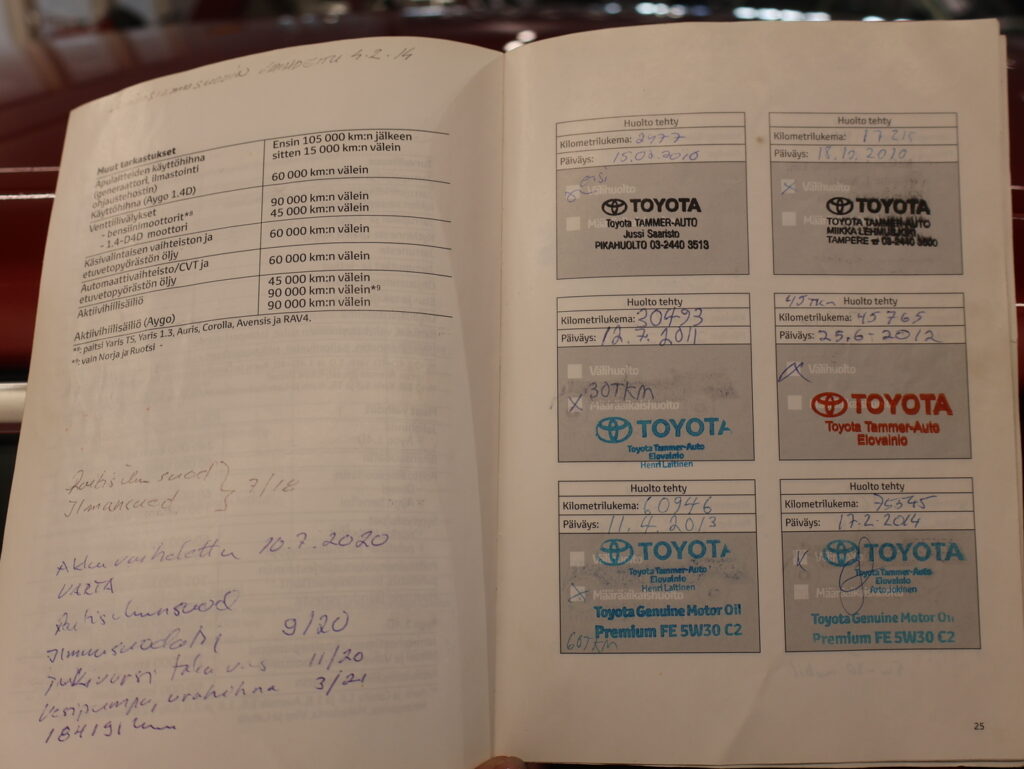 VAIHDETTU 4.2.14
Muut tarkastukset
Ensin 105 000 km:n jälkeen
sitten 15 000 km:n välein
Apulaitteiden käyttöhihna
(generaattori, ilmastointi
ohjaustehostin)
60 000 km:n välein
Käyttöhihna (Aygo 1.4D)
Venttiilivälykset
- bensiinimoottorit*⁸
90 000 km:n välein
- 1,4-D4D moottori
45 000 km:n välein
Käsivalintaisen vaihteiston ja
etuvetopyörästön öljy
60 000 km:n välein
Automaattivaihteisto/CVT ja
etuvetopyörästön öljy
60 000 km:n välein
Aktiivihiilisäiliö
45 000 km:n välein
90 000 km:n välein*⁹
Aktiivihiilisäiliö (Aygo)
90 000 km:n välein
*⁸: paitsi Yaris TS, Yaris 1.3, Auris, Corolla, Avensis ja RAV4.
*⁹: vain Norja ja Ruotsi -
Raitisilm suod
Ilmansuod
7/18
Akku vaihdettu 10.7.2020
VARTA
Raitisilmansuod
Ilmansuodatin 9/20
taka 11/20
Vesipumppu, urahihna 3/21
184191 km
Huolto tehty
Kilometrilukema: 2977
Päiväys: 15.03.2010
ensi
TOYOTA
Toyota TAMMER-AUTO
Jussi Saaristo
PIKAHUOLTO 03-2440 3513
Huolto tehty
Kilometrilukema:
Päiväys: 18.10.2010
Välihuolto
TOYOTA
TOYOTA TAMMER-AUTO
TAMPERE ☎ 03-2440
Huolto tehty
Kilometrilukema: 30493
Päiväys: 12.7.2011
Välihuolto
30TKM
Määräaikaishuolto
TOYOTA
Toyota Tammer-Auto
Elovainio
Henri Laitinen
45TKM Huolto tehty
Kilometrilukema: 45765
Päiväys: 25.6-2012
Välihuolto
TOYOTA
Toyota Tammer-Auto
Elovainio
Huolto tehty
Kilometrilukema: 60946
Päiväys: 11.4.2013
TOYOTA
Toyota Tammer-Auto
Elovainio
Henri Laitinen
Määräaikaishuolto
Toyota Genuine Motor Oil
Premium FE 5W30 C2
60TKM
Huolto tehty
Kilometrilukema: 75545
Päiväys: 17.2-2014
TOYOTA
Toyota Tammer-Auto
Elovainio
Arto Jokinen
Toyota Genuine Motor Oil
Premium FE 5W30 C2
25